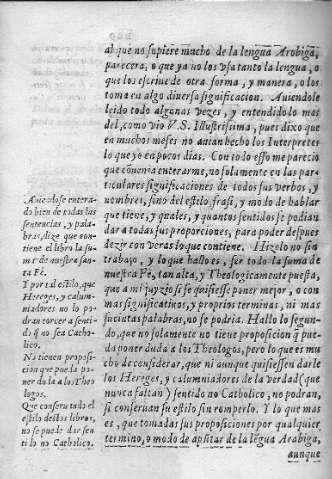 al que no supiere mucho de la lengua Arobiga,
parecera, o que ya no los vsa tanto la lengua, o
que los escriue de otra forma, y manera, o los
toma en algo diuersa significacion. Auiendole
leido todo algunas vezes, y entendidolo mas
del, como vio V. S. Illustrissima, pues dixo que
en muchos meses no auian hecho los Interpretes
lo que yo en pocos dias. Con todo esso me parecio
que conuenia enterarme, no solamente en las par-
ticulares significaciones de todos sus verbos, y
nombres, sino del estilo, frasi, y modo de hablar
que tiene, y quales, y quantos sentidos se podian
dar a todas sus proporciones, para poder despues
dezir con veras lo que contiene. Hizelo no sin
trabajo, y lo que hallo es, ser todo la suma de
nuestra Fe, tan alta, y Theologicamente puesta,
que a mi juyzio si se quisiesse poner mejor, o con
mas significatiuos, y proprios terminos, ni mas
sucintas palabras, no se podria. Hallo lo segun-
do, que no solamente no tiene proposicion q̃ pue-
da poner duda a los Theologos, pero lo que es mu-
cho de considerar, que ni aunque quisiessen darle
los Hereges, y calumniadores de la verdad (que
nunca faltan) sentido no Catholico, no podran,
si conseruan su estilo sin romperlo. Y lo que mas
es, que tomadas sus proposiciones por qualquier
termino, o modo de aplicar de la lẽgua Arabiga,
aunque
Auiẽdose entera-
do bien de todas las
sentencias, y pala-
bras, dize que con-
tiene el libro la su-
mr de nuestra san-
ta Fè.
Y por tal estilo, que
Hereges, y calum-
niadores no lo po-
dran torcer a senti-
do q̃ no sea Catho-
lico.
No tienen proposi-
cion que pueda po-
ner duda a los Theo
logos.
Que conseruãdo el
estilo destos libros,
no se puede dar sen-
tido no Catholico.